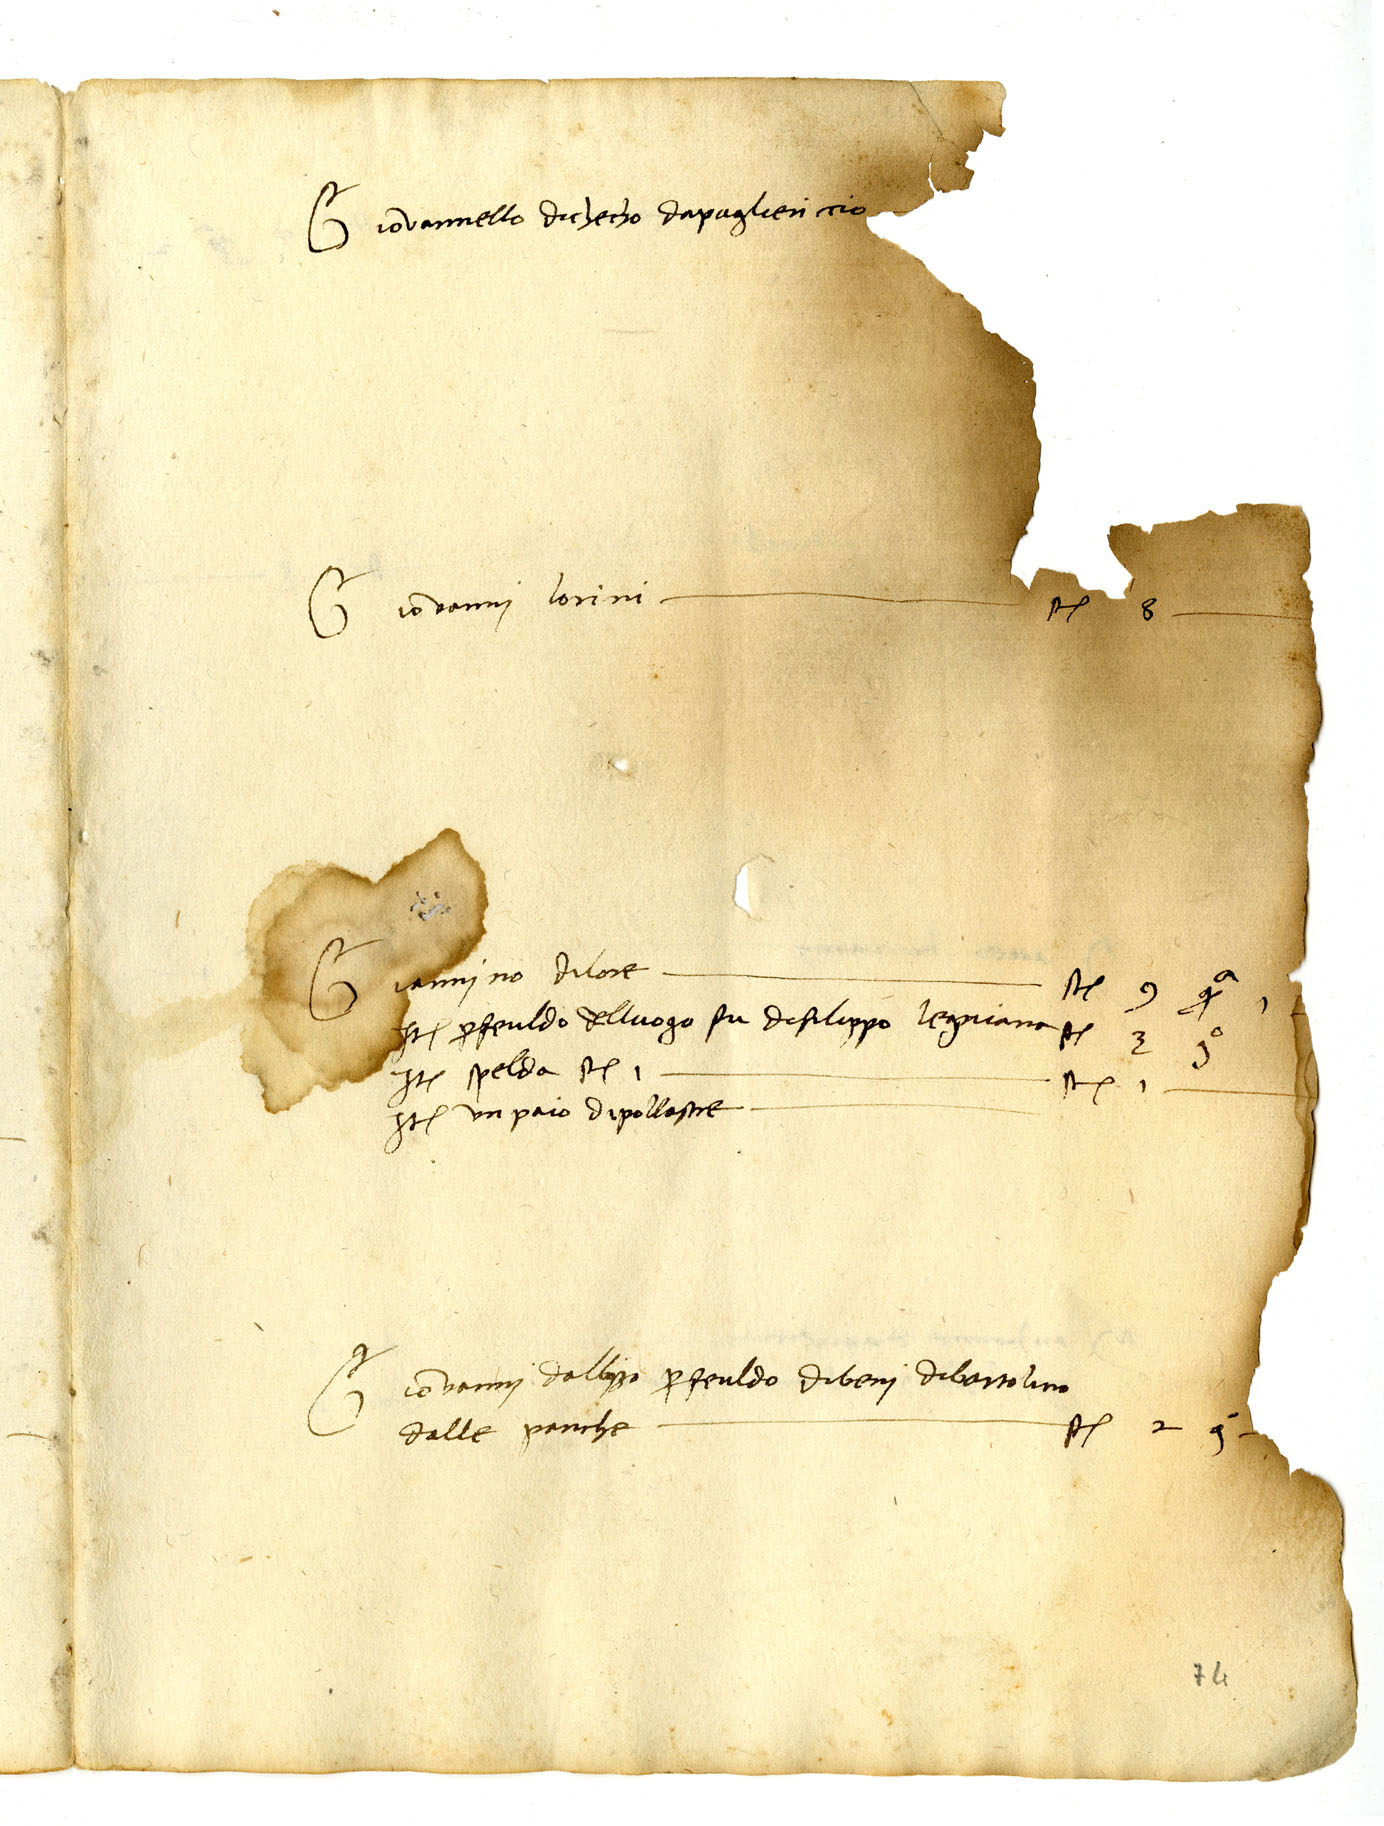 Giovannello dichecho dapaglericcio
Giovanni lorini st 8
Giannino dilore st 9 qa 1
It p feuldo delluogo fu difilippo legniana st 3 go
It spelda st 1 st 1
It un paio dipollastre
Giovanni dallippo p feuldo dibeni dibartolino
dalle panche st 2 g
74